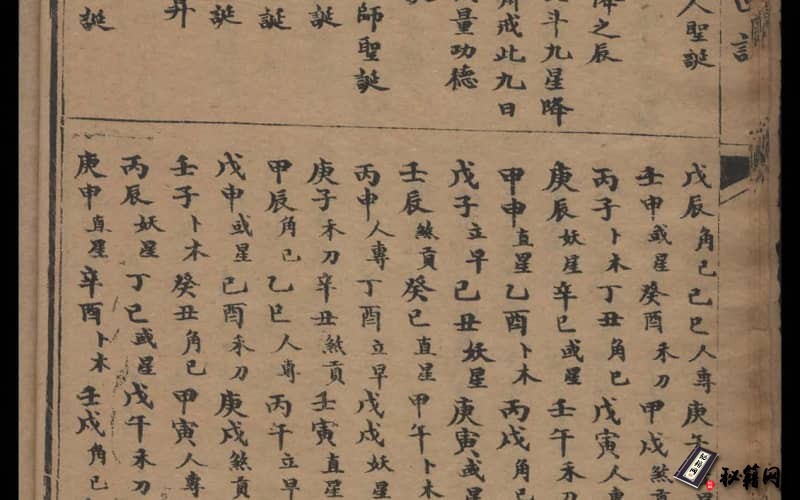 人聖誕
之辰
斗九星降
戒此九日
量功德
師聖誕
誕
誕
誕
昇
誕
戊辰角己己巳人專庚午
壬申或星癸酉禾刀甲戌煞
丙子卜木丁丑角己戊寅人專
庚辰妖星辛巳或星壬午禾刀
甲申直星乙酉卜木丙戌角己
戊子立早己丑妖星庚寅或星
壬辰煞貢癸巳直星甲午卜木
丙申人專丁酉立早戊戌妖星
庚子禾刀辛丑煞貢壬寅直星
甲辰角己乙巳人專丙午立早
戊申或星己酉禾刀庚戌煞貢
壬子卜木癸丑角己甲寅人專
丙辰妖星丁巳或星戊午禾刀
庚申直星辛酉卜木壬戌角己
秘籍网